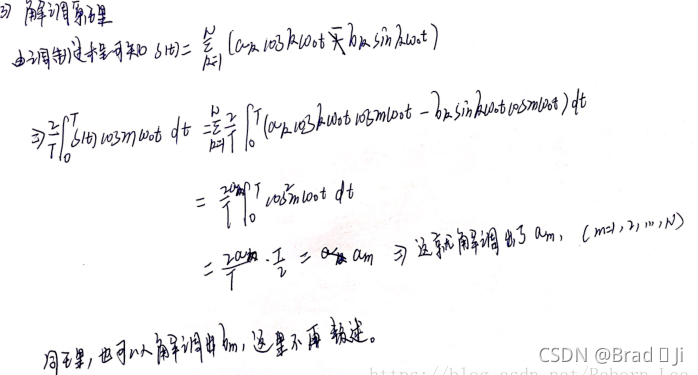 3) 解调原理
由调制过程可知 S(t) = Σ_{k=1}^{N} (a_k cos kω₀t - b_k sin kω₀t)
⇒ 2/T ∫_0^T S(t) cos mω₀t dt = Σ_{k=1}^{N} 2/T ∫_0^T (a_k cos kω₀t cos mω₀t - b_k sin kω₀t cos mω₀t) dt
= 2a_m/T ∫_0^T cos² mω₀t dt
= 2a_m/T · T/2 = a_m ⇒ 这就解调出了 a_m, (m=1, 2, ..., N)
同理,也可以解调出 b_m,这里不再叙述。
CSDN @Brad Ji
https://blog.csdn.net/Reborn_Lee